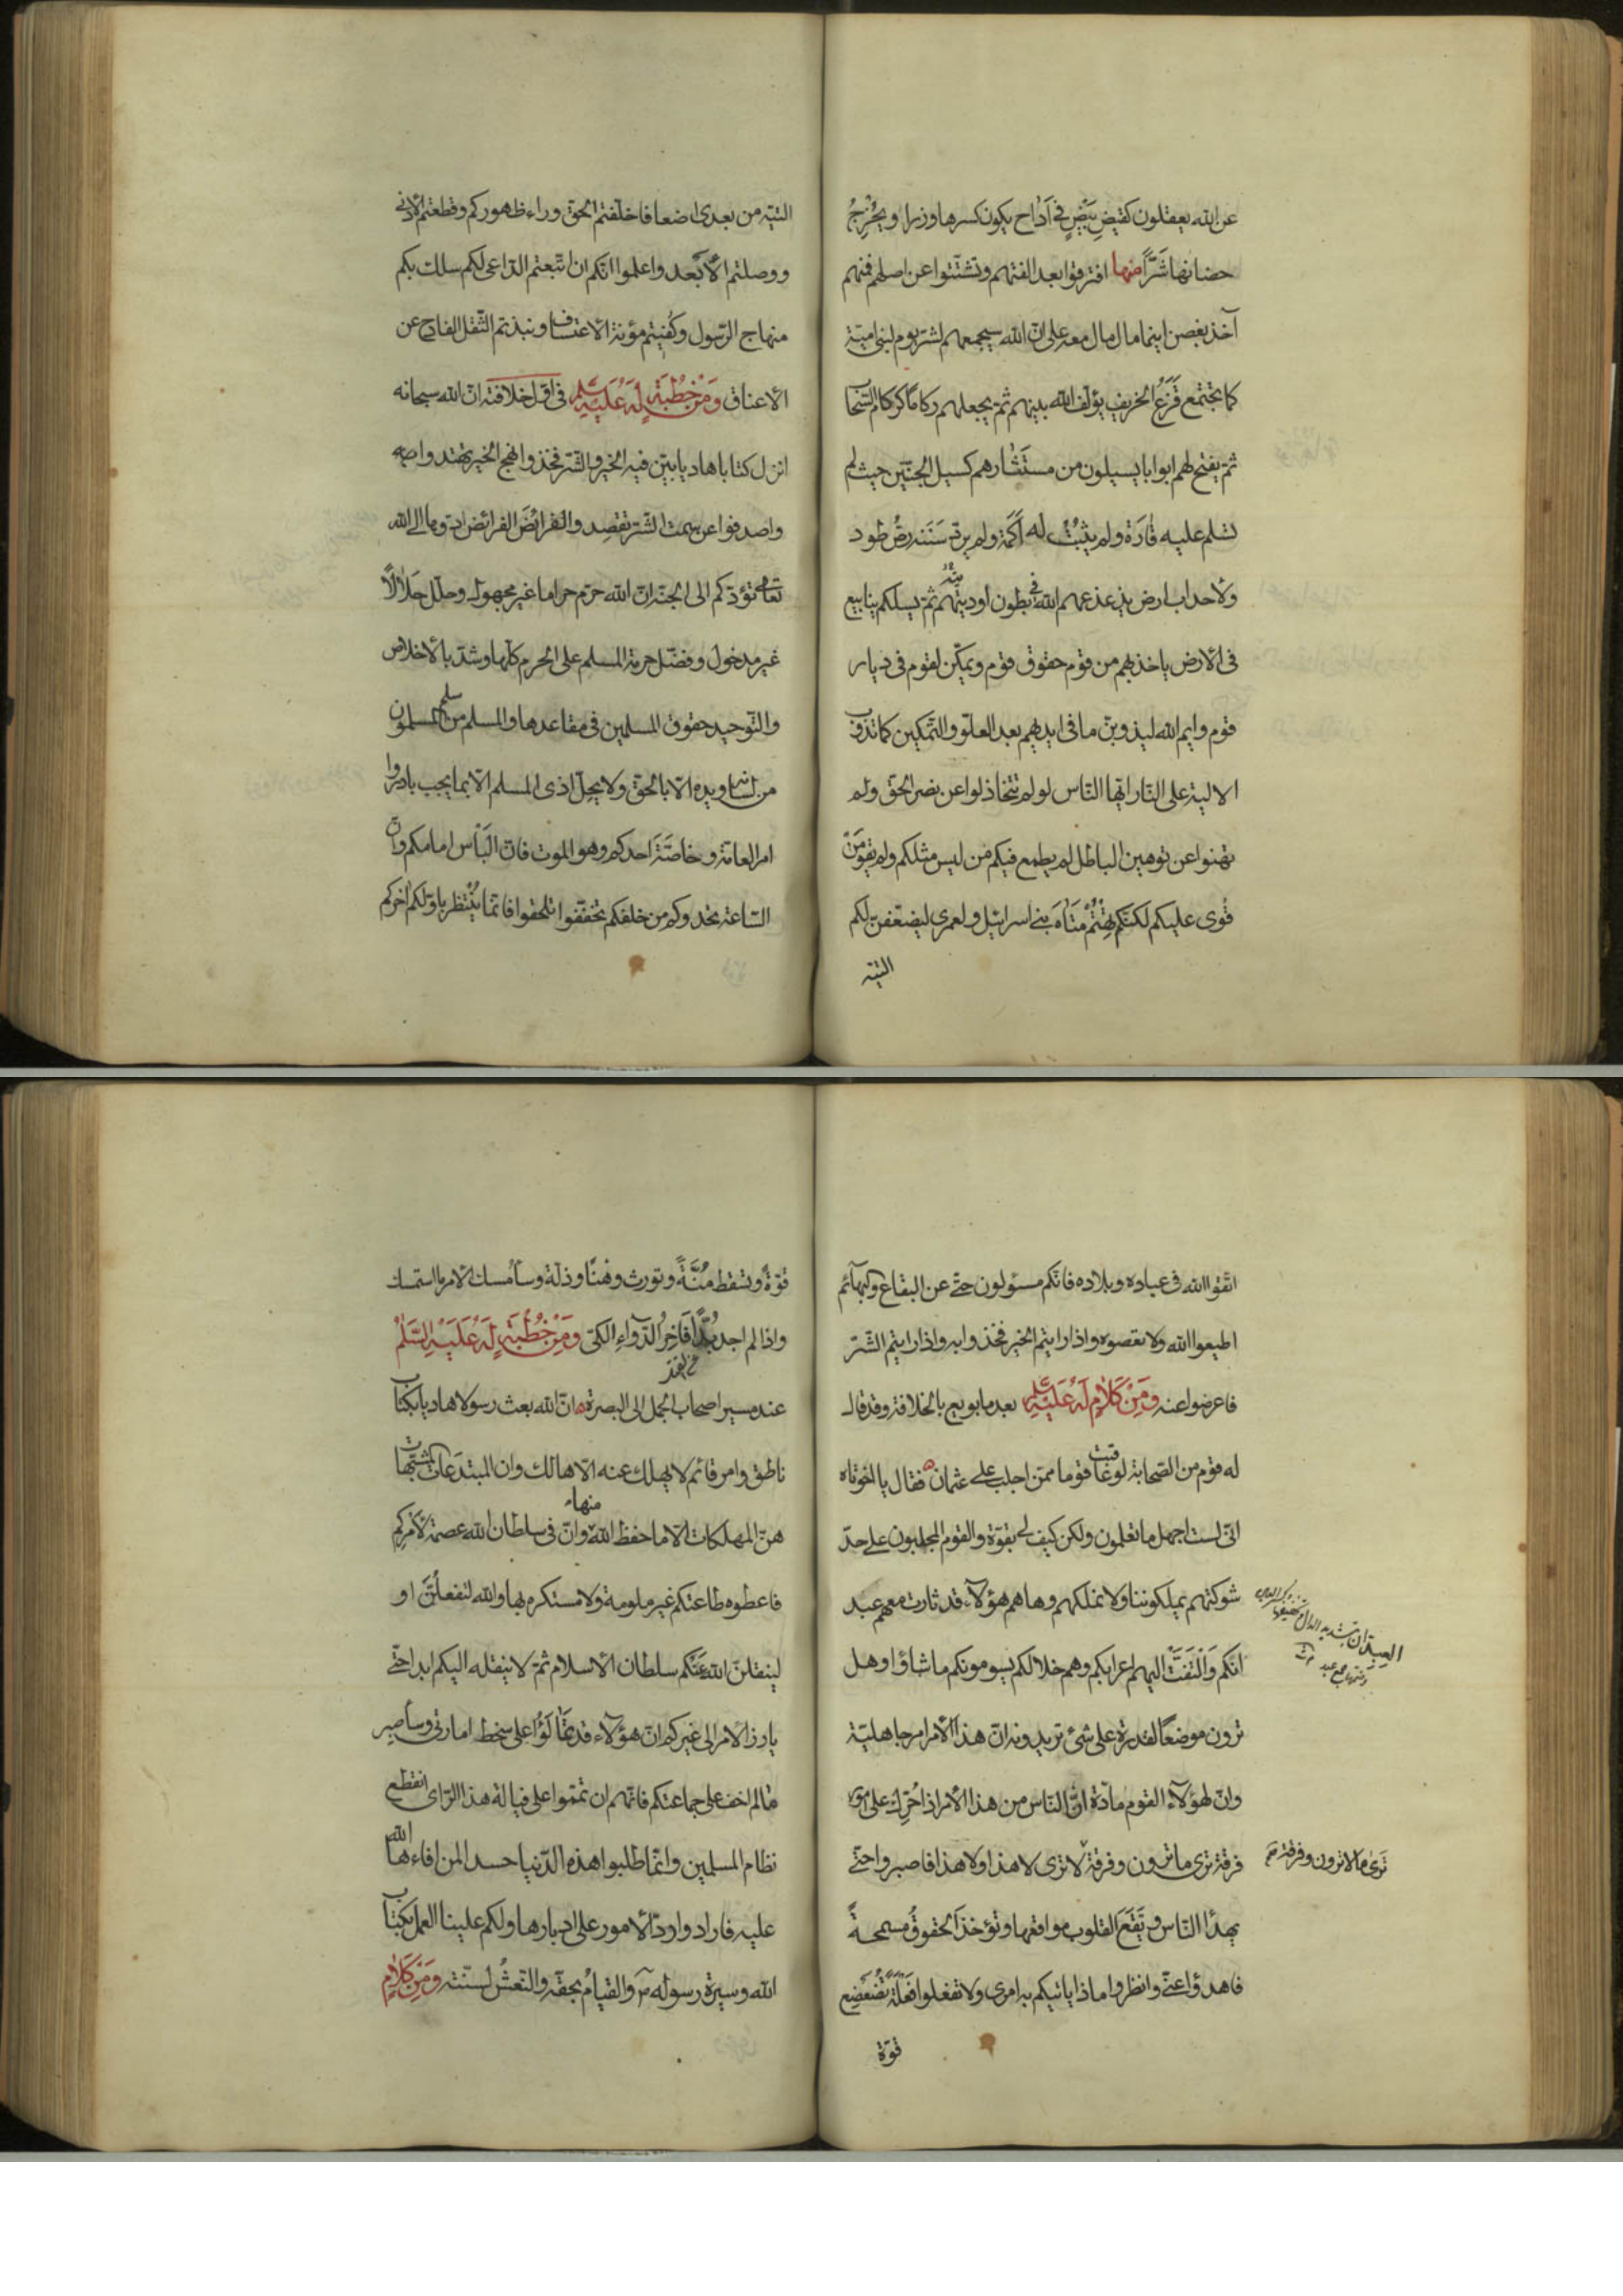 عن الله يعقلون كقيض بَيْضٍ في اَدَاح يكون كسرها وزرا ويُخْرِجُ
حضانها شَرًّا منها افترقوا بعد الفتهم وتشتّتوا عن اصلهم فمنهم
آخذ بغصن اينما مال مال معه على انّ الله سيجمعهم لشرّ يوم لبنى اميّة
كما تجتمع قَزَعُ الخريف يؤلّف الله بينهم ثمّ يجعلهم ركاما كركام السّحاب
ثمّ يفتح لهم ابوابا يسيلون من مستَثَارهم كسيل الجنّتين حيث لم
تسلم عليه قَارَة ولم يثبُتْ له اَكَمَة ولم يردّ سَنَنه رصُّ طود
ولا حداب ارض يذعذعهم الله في بطون أوديته ثمّ يسلكهم ينابيع
فى الارض ياخذ بهم من قوم حقوق قوم ويمكّن لقوم فى ديار
قوم وايم الله ليذوبنّ ما فى ايديهم بعد العلوّ والتّمكين كما تذوب
الالية على النّار ايّها النّاس لو لم تتخاذلوا عن نصر الحق ولم
تهنوا عن توهين الباطل لم يطمع فيكم من ليس مثلكم ولم يقوَ مَنْ
قَوى عليكم لكنّكم تِهْتُمْ مَتَاهَ بنى اسرائيل ولعمرى ليضعّفنّ لكم
التيه
التيّه من بعدى اضعافا خلّفتم الحق وراء ظهوركم وقطعتم الادنى
ووصلتم الاَبْعد واعلموا انّكم ان اتّبعتم الدّاعى لكم سلك بكم
منهاج الرّسول وكُفيتم مؤنة الاعتساف ونبذتم الثّقل الفادح عن
الاعناق وَمِنْ خُطْبَةٍ لَهُ عَلَيْهِ السَّلم فى اوّل خلافته انّ الله سبحانه
انزل كتابا هاديا بيّن فيه الخير والشّر فخذوا نهج الخير تهتدوا
واصدفوا عن سمت الشّر تقصِدوا الفرائضَ الفرائض ادّوها الى الله
تعالى تؤدّكم الى الجنّة انّ الله حرّم حراما غير مجهول وحلّل حَلَالًا
غير مدخول وفضّل حرمة المسلم على الحرم كلّها وشدّ بالاخلاص
والتّوحيد حقوق المسلمين فى مقاعدها والمسلم من سلم المسلمون
من لسانه ويده الّا بالحق ولا يحلّ اذى المسلم الّا بما يجب بادروا
امر العامّة وخاصَّةَ احدكم وهو الموت فانّ البَأْس امامكم وانّ
السّاعة تحدوكم من خلفكم تخفّفوا تلحقوا فانّما يُنْتظر باوّلكم اخركم
اتّقوا الله فى عباده وبلاده فانّكم مسئولون حتّى عن البقاع والبهآئم
اطيعوا الله ولا تعصوه واذا رايتم الخير فخذوا به واذا رايتم الشّرّ
فاعرضوا عنه وَمِنْ كَلَامٍ لَهُ عَلَيْهِ السَّلم بعد ما بويع بالخلافة وقد قال
له قوم من الصّحابة لو عاقبت قوما ممّن اجلب على عثمان فقال يا اخوتاه
انّى لست اجهل ما تعلمون ولكن كيف لى بقوّة والقوم المجلبون على حدّ
شوكتهم يملكوننا ولا نملكهم وها هم هؤلآء قد ثارت معهم عبد
انكم وَالْتَفَتَّ اليهم اعرابكم وهم خلالكم يسومونكم ما شاؤا وهل
ترون موضعًا لقدرة على شئ تريدونه انّ هذا الامر امر جاهليّة
وانّ لهؤلآء القوم مادّة انَّ النّاس من هذا الامر اذا حُرّك على امور
فرقة ترى ما ترون وفرقة لا ترى لا هذا ولا هذا فاصبروا حتّى
ترى ما لا ترون وفرقة
يهدَأ النّاس وتَقَعَ القلوب مواقعها وتؤخذَ الحقوقُ مسمحةً
فاهدؤا عنّى وانظروا ماذا ياتيكم به امرى ولا تفعلوا فَعْلَةً تُضَعْضِع
قوّة
قوّةً وتسقط مُنَّةً وتورث وهْنًا وذلّة وسأمْسك الامر ما استمسك
واذا لم اجد بُدًّا فَآخِرُ الدّوآءِ الكىّ وَمِنْ خُطْبَةٍ لَهُ عَلَيْهِ السَّلَامُ
عند مسير اصحاب الجمل الى البصرة انّ الله بعث رسولا هاديا بكتاب
ناطق وامر قائم لا يهلك عنه الّا هالك وان المبتدَعَات المشبّهات
هنّ المهلكات الّا ما حفظ الله منها وانّ فى سلطان الله عصمة لاَمْرِكم
فاعطوه طاعتكم غير ملومة ولا مستكره بها والله لتفعلُنَّ او
لينقلنّ الله عَنْكم سلطان الاسلام ثمّ لا ينقله اليكم ابدا حتّى
يارز الامر الى غيركم انّ هؤلآء قد تمَالَؤُا على سخط امارتى وسأصبر
ما لم اخف على جماعتكم فانّهم ان تمّموا على فيالة هذا الرّاى انقطع
نظام المسلمين وانّما طلبوا هذه الدّنيا حسدا لمن افاءها الله
عليه فارادوا ردّ الامور على ادبارها ولكم علينا العمل بكتاب
الله وسيرة رسوله والقيامُ بحقّه والنّعشُ لسنّته وَمِنْ كَلَامٍ